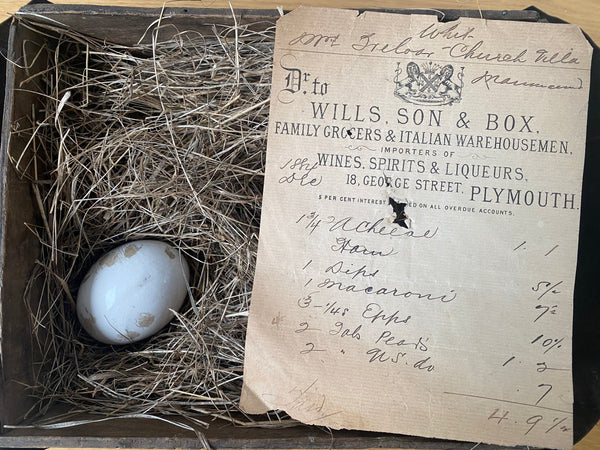 Whit
Mrs Treloar Church Villa
Dr. to
WILLS, SON & BOX,
FAMILY GROCERS & ITALIAN WAREHOUSEMEN,
IMPORTERS OF
WINES, SPIRITS & LIQUEURS,
18, GEORGE STREET, PLYMOUTH.
5 PER CENT INTEREST ON ALL OVERDUE ACCOUNTS.
Dec
1 3/4 A Cheese 1. 1
Ham
1 Dips 5½
1 Macaroni
3 ¼s Epps 10½
2 Tabs Pears 1. 2
2 " U.S. do 7
4. 9½